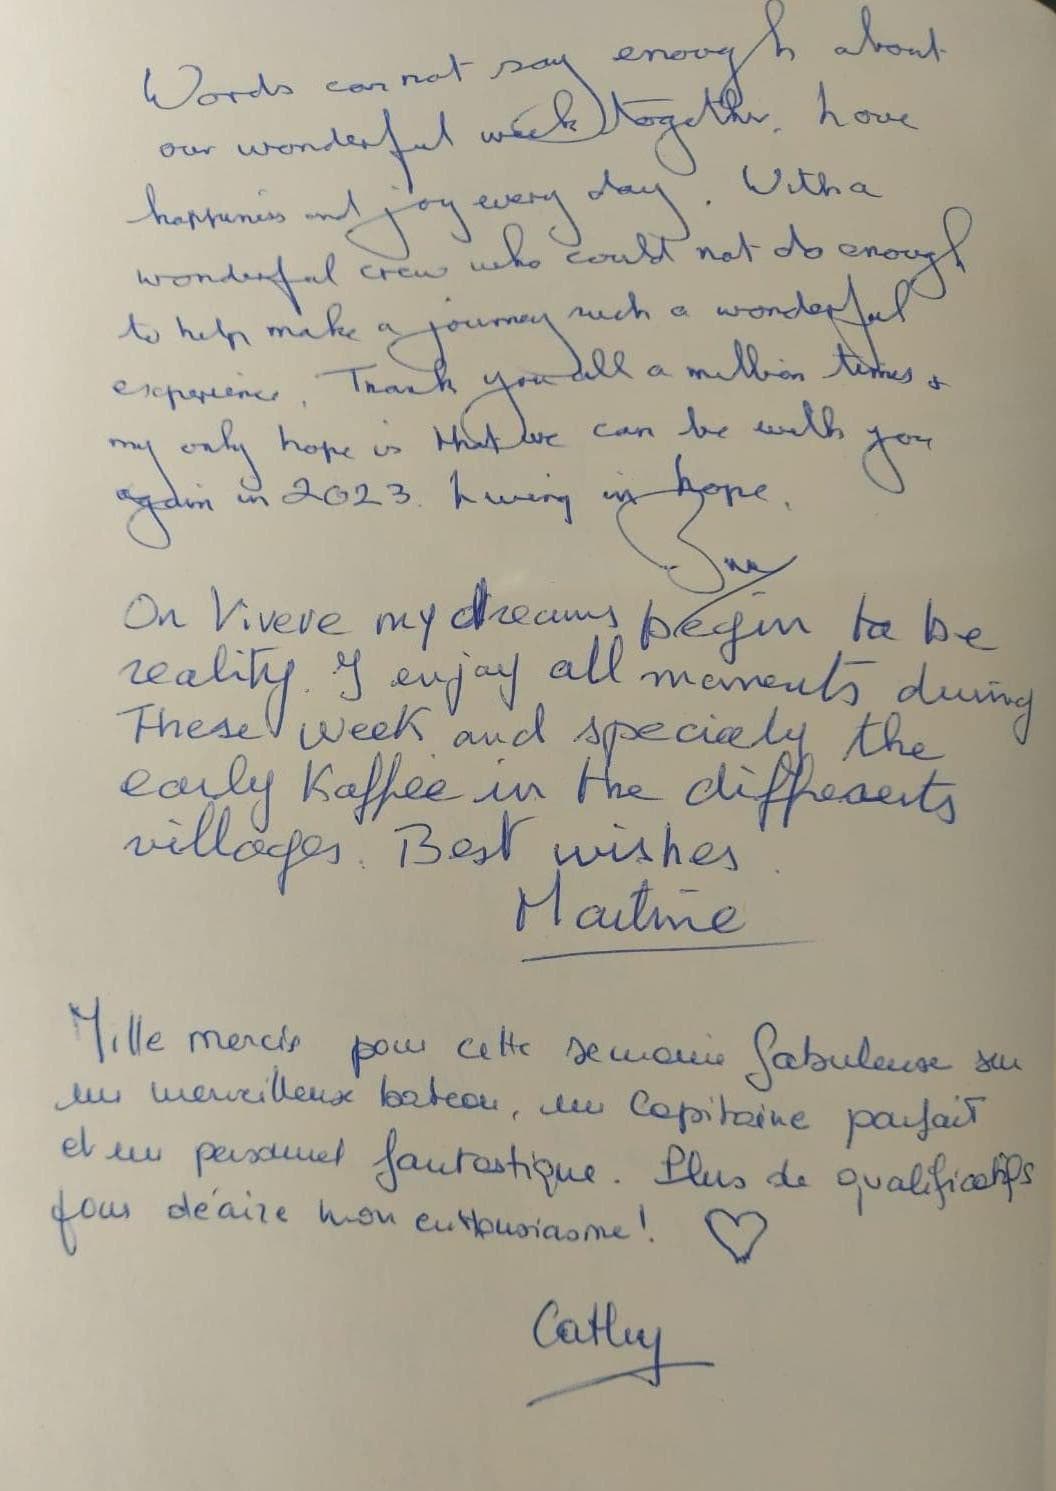 Words can not say enough about
our wonderful week together. Love
happiness and joy every day. With a
wonderful crew who could not do enough
to help make a journey such a wonderful
experience. Thank you all a million times &
my only hope is that we can be with you
again in 2023. Living in hope.
On Vivere my dreams begin to be
reality. I enjoy all moments during
These week and specialy the
early Kaffee in the differents
villages. Best wishes.
Martine
Mille mercis pour cette semaine fabuleuse sur
un merveilleux bateau, un Capitaine parfait
et un personnel fantastique. Plus de qualificatifs
pour décrire mon enthousiasme! ♡
Cathy